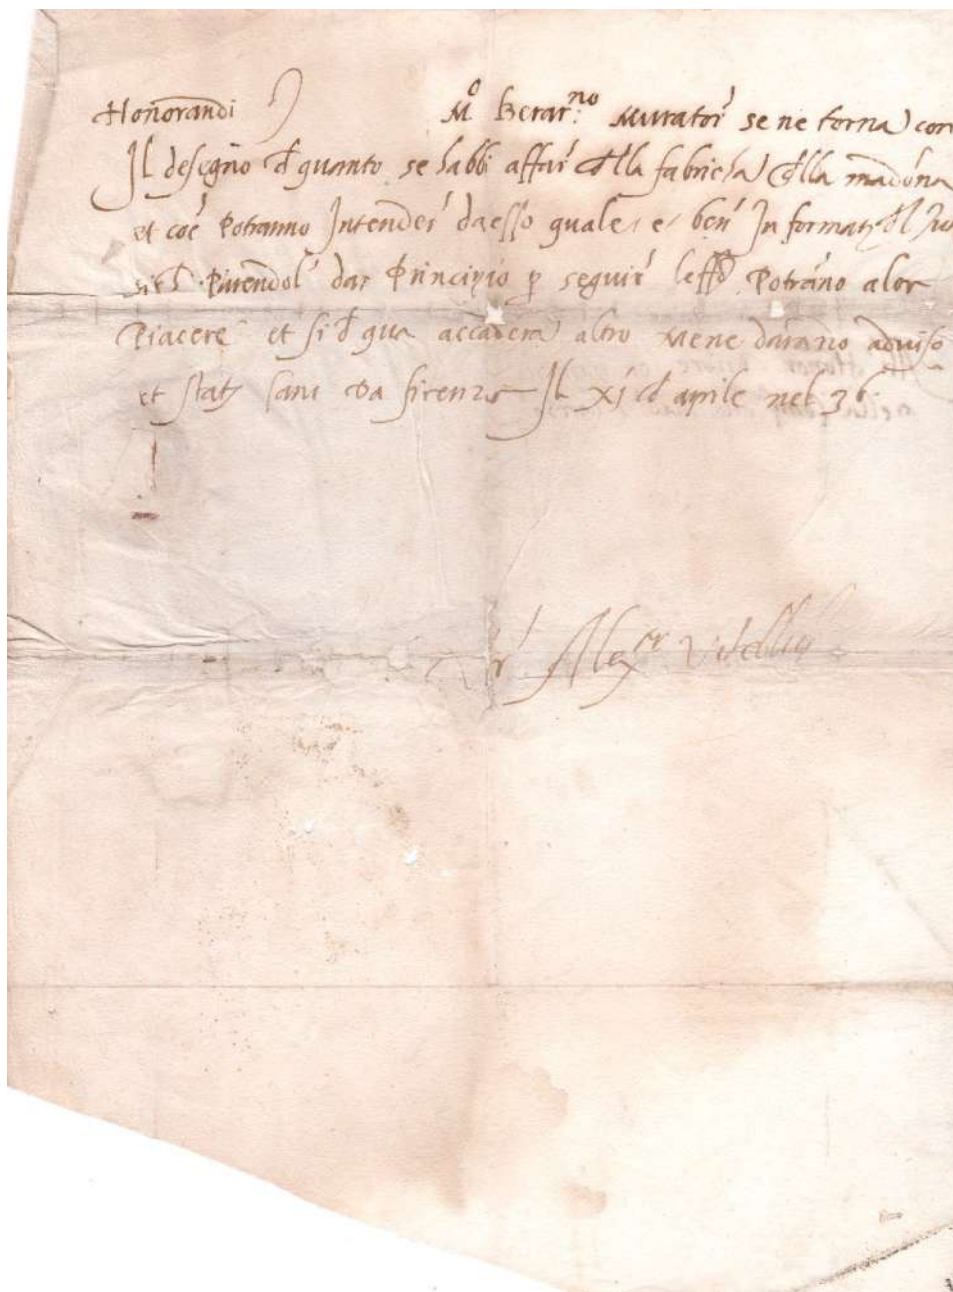 Honorandi Mo Berarno Muratori se ne torna con
Il desegno d quanto se habbi affar della fabricha della madona
et coe Potranno Intender da esso quale e ben In format del
Parendol dar Principio p seguir leffo Potrano a lor
Piacere et si d qua accadera altro me ne darano adviso
et stat sani Da firenze Il xi d aprile nel 36
Alexr Vitelli